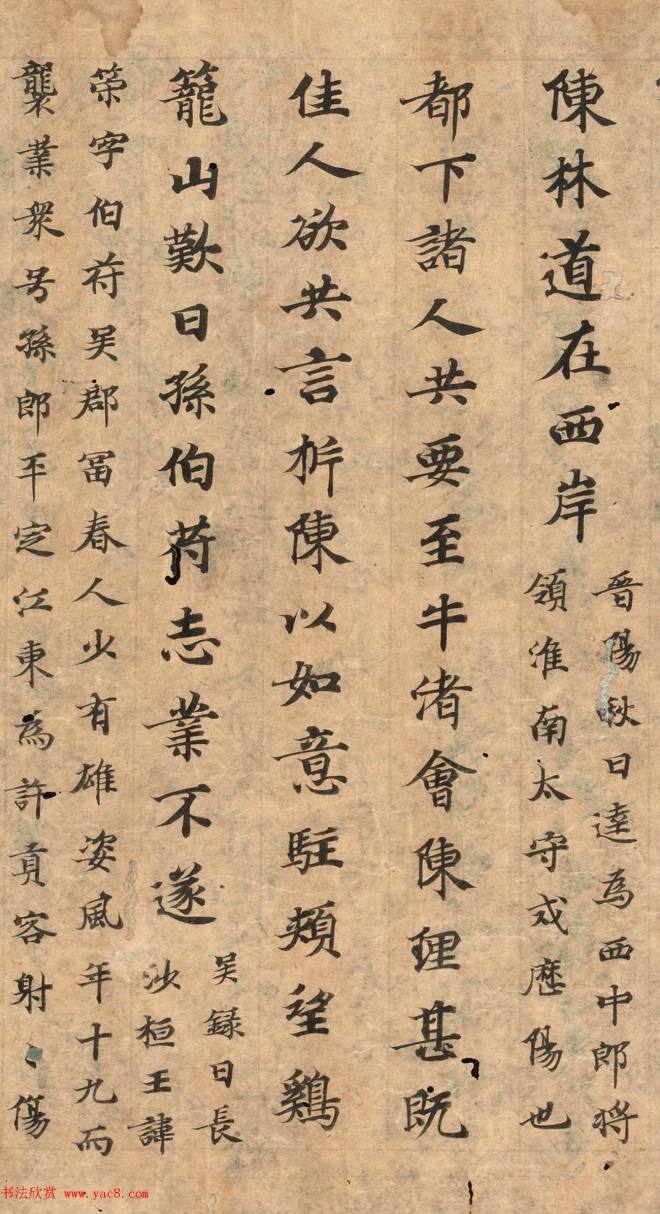 陳林道在西岸
晉陽秋曰逵為西中郎將
領淮南太守戍歷陽也
都下諸人共要至牛渚會陳理甚既
佳人欲共言析陳以如意駐頰望鷄
籠山歎曰孫伯苻志業不遂
吳錄曰長
沙桓王諱
筞字伯苻吳郡冨春人少有雄姿風年十九而
襲業衆号孫郎平定江東為許貢客射〻傷
书法欣赏 www.yac8.com